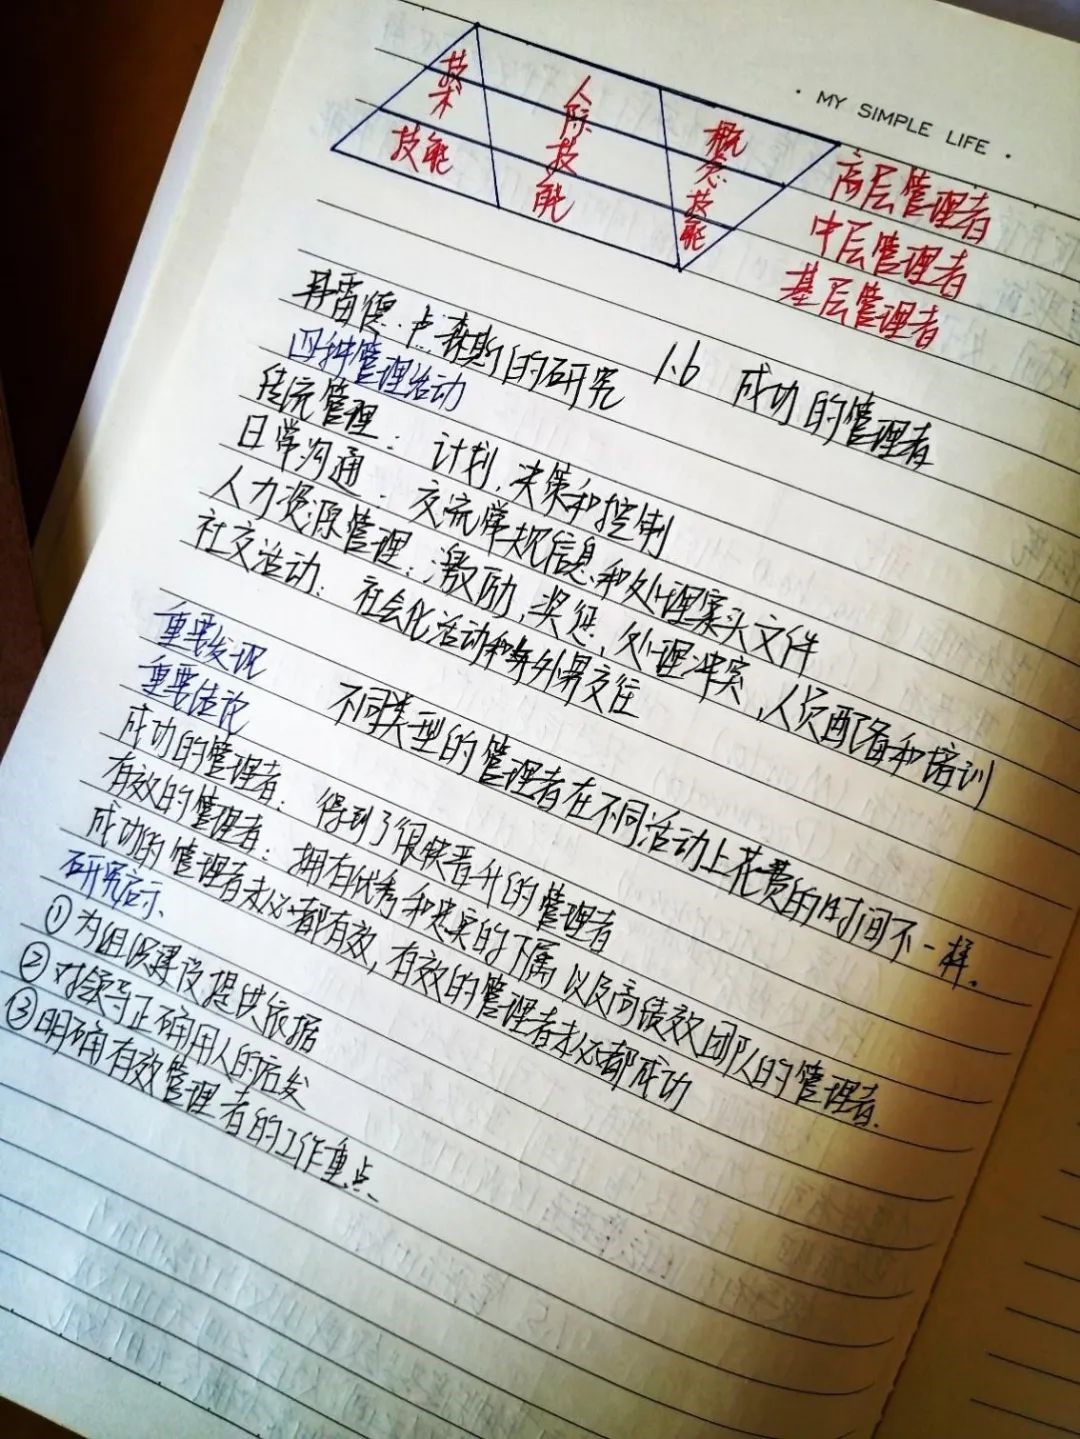 · MY SIMPLE LIFE ·
技术技能
人际技能
概念技能
高层管理者
中层管理者
基层管理者
1.6 成功的管理者
弗雷德·卢森斯的研究
四种管理活动
传统管理：计划，决策和控制
日常沟通：交流常规信息和处理案头文件
人力资源管理：激励，奖惩，处理冲突，人员配备和培训
社交活动：社会化活动和与外界交往
重要发现
不同类型的管理者在不同活动上花费的时间不一样.
重要结论
成功的管理者：得到了很快晋升的管理者
有效的管理者：拥有优秀和忠实的下属以及高绩效团队的管理者.
成功的管理者未必都有效，有效的管理者未必都成功
研究启示.
①为组织建设提供依据
②对领导正确用人的启发
③明确有效管理者的工作重点.